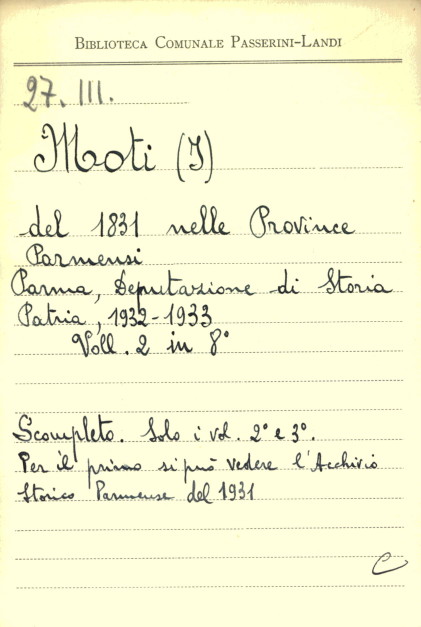 Biblioteca Comunale Passerini-Landi
27. III.
Moti (I)
del 1831 nelle Province
Parmensi
Parma, Deputazione di Storia
Patria, 1932-1933
Voll. 2 in 8°
Scompleto. Solo i vol. 2° e 3°.
Per il primo si può vedere l'Archivio
Storico Parmense del 1931
C